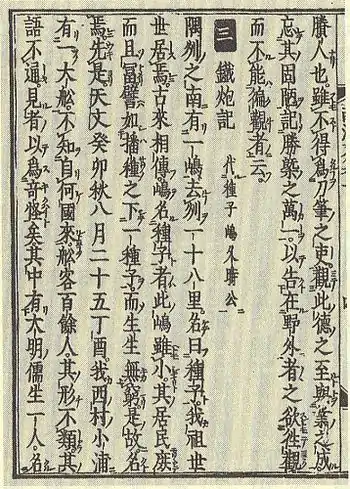 人也。雖不得為刀筆之吏觀此德之至與業之成
忘其固陋記勝槩之萬一。以告在野外者之欲徃觀
而不能徧觀者云。
三 鐵炮記 代種子嶋久時公
隅州之南有一嶋。去州一十八里。名曰種子。我祖世
世居焉。古來相傳嶋名種子者此嶋雖小。其居民庶
而且冨譬如播種之下一種子。而生生無窮。是故名
焉。先是天文癸卯秋八月二十五丁酉。我西村小浦
有一大舩。不知自何國來。舩客百餘人。其形不類。其
語不通。見者以為奇怪矣。其中有大明儒生一人。名